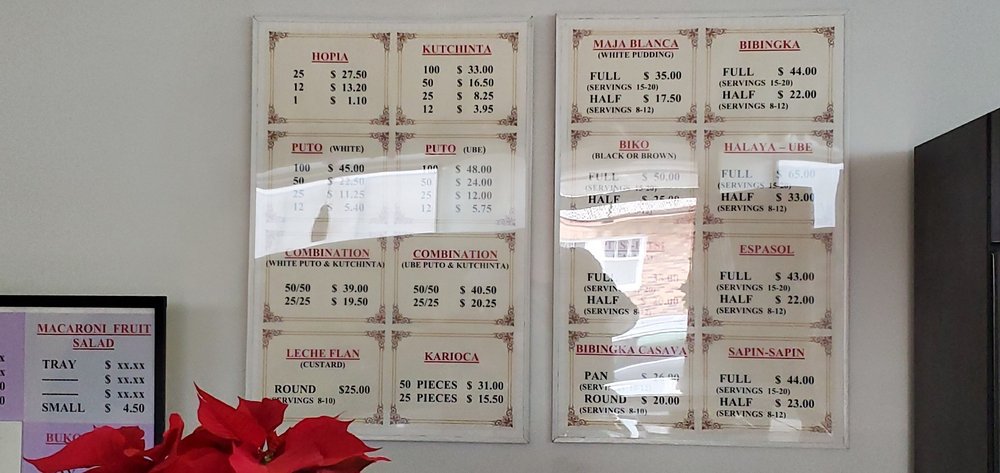 HOPIA
25 $ 27.50
12 $ 13.20
1 $ 1.10
KUTCHINTA
100 $ 33.00
50 $ 16.50
25 $ 8.25
12 $ 3.95
PUTO (WHITE)
100 $ 45.00
50 $ 22.50
25 $ 11.25
12 $ 5.40
PUTO (UBE)
100 $ 48.00
50 $ 24.00
25 $ 12.00
12 $ 5.75
COMBINATION
(WHITE PUTO & KUTCHINTA)
50/50 $ 39.00
25/25 $ 19.50
COMBINATION
(UBE PUTO & KUTCHINTA)
50/50 $ 40.50
25/25 $ 20.25
LECHE FLAN
(CUSTARD)
ROUND $25.00
(SERVINGS 8-10)
KARIOCA
50 PIECES $ 31.00
25 PIECES $ 15.50
MAJA BLANCA
(WHITE PUDDING)
FULL $ 35.00
(SERVINGS 15-20)
HALF $ 17.50
(SERVINGS 8-12)
BIBINGKA
FULL $ 44.00
(SERVINGS 15-20)
HALF $ 22.00
(SERVINGS 8-12)
BIKO
(BLACK OR BROWN)
FULL $ 50.00
(SERVINGS 15-20)
HALF $ 25.00
(SERVINGS 8-12)
HALAYA – UBE
FULL $ 65.00
(SERVINGS 15-20)
HALF $ 33.00
(SERVINGS 8-12)
FULL
(SERVINGS
HALF
(SERVINGS
ESPASOL
FULL $ 43.00
(SERVINGS 15-20)
HALF $ 22.00
(SERVINGS 8-12)
BIBINGKA CASAVA
PAN $ 26.00
(SERVINGS 15-20)
ROUND $ 20.00
(SERVINGS 8-10)
SAPIN-SAPIN
FULL $ 44.00
(SERVINGS 15-20)
HALF $ 23.00
(SERVINGS 8-12)
MACARONI FRUIT
SALAD
TRAY $ xx.xx
$ xx.xx
$ xx.xx
SMALL $ 4.50
BUKO